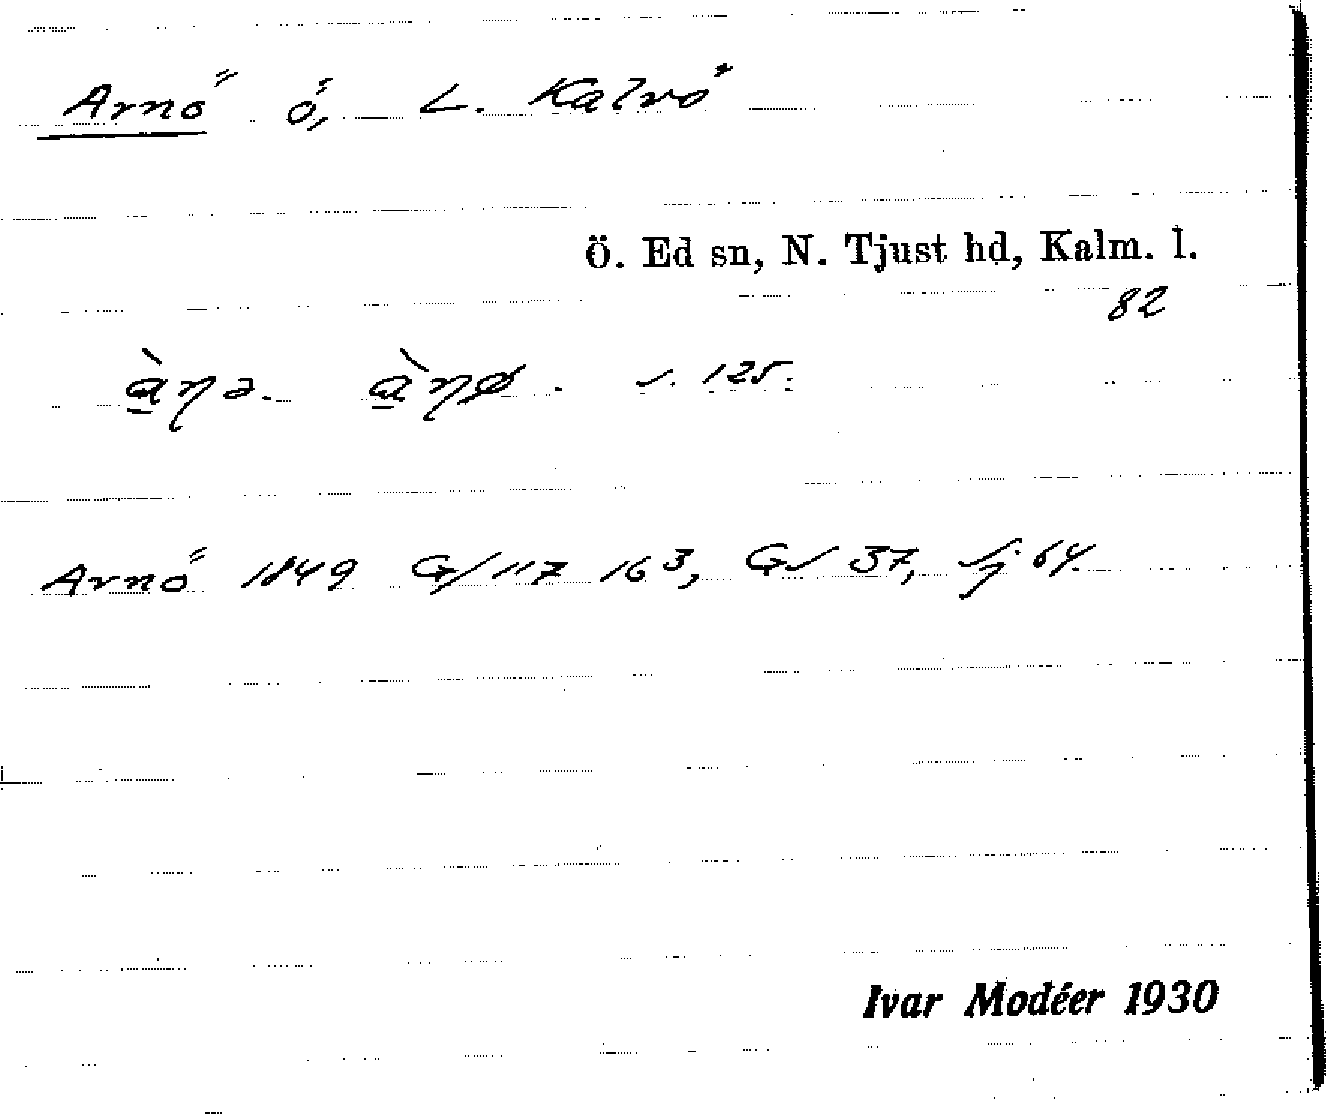 Arnö ö, L. Kalvö
Ö. Ed sn, N. Tjust hd, Kalm. l.
82
s. 125.
Arnö 1849 GS 117 163, GS 37, Sj 64.
Ivar Modéer 1930